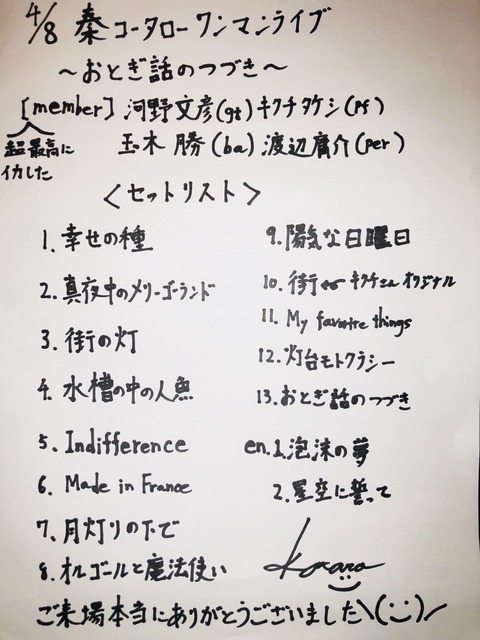 4/8 秦コータローワンマンライブ
～おとぎ話のつづき～
[member] 河野文彦(gt) キクチタケシ(Pf)
超最高に
イカした
玉木 勝(ba) 渡辺庸介(per)
〈セットリスト〉
1. 幸せの種
2. 真夜中のメリーゴーランド
3. 街の灯
4. 水槽の中の人魚
5. Indifference
6. Made in France
7. 月灯りの下で
8. オルゴールと魔法使い
9. 陽気な日曜日
10. 街 ← キクチさんオリジナル
11. My favorite things
12. 灯台モトクラシー
13. おとぎ話のつづき
en. 1. 泡沫の夢
2. 星空に誓って
Kotaro
ご来場本当にありがとうございました\(:)/